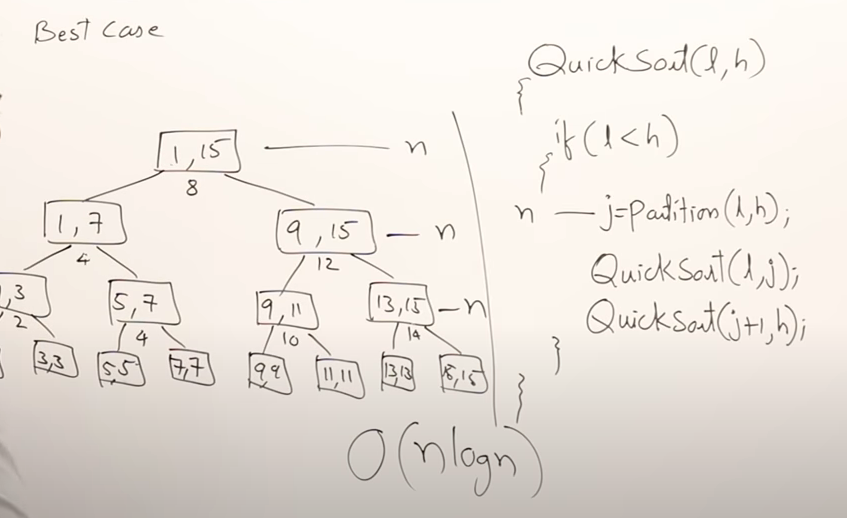 Best Case
1,15 — n
8
1,7
9,15 — n
4
12
,3
5,7
9,11
13,15 — n
2
4
10
14
3,3
5,5
7,7
9,9
11,11
13,13
15,15
O(nlogn)
QuickSort(l,h)
{
if(l<h)
{
n — j=Partition(l,h);
QuickSort(l,j);
QuickSort(j+1,h);
}
}